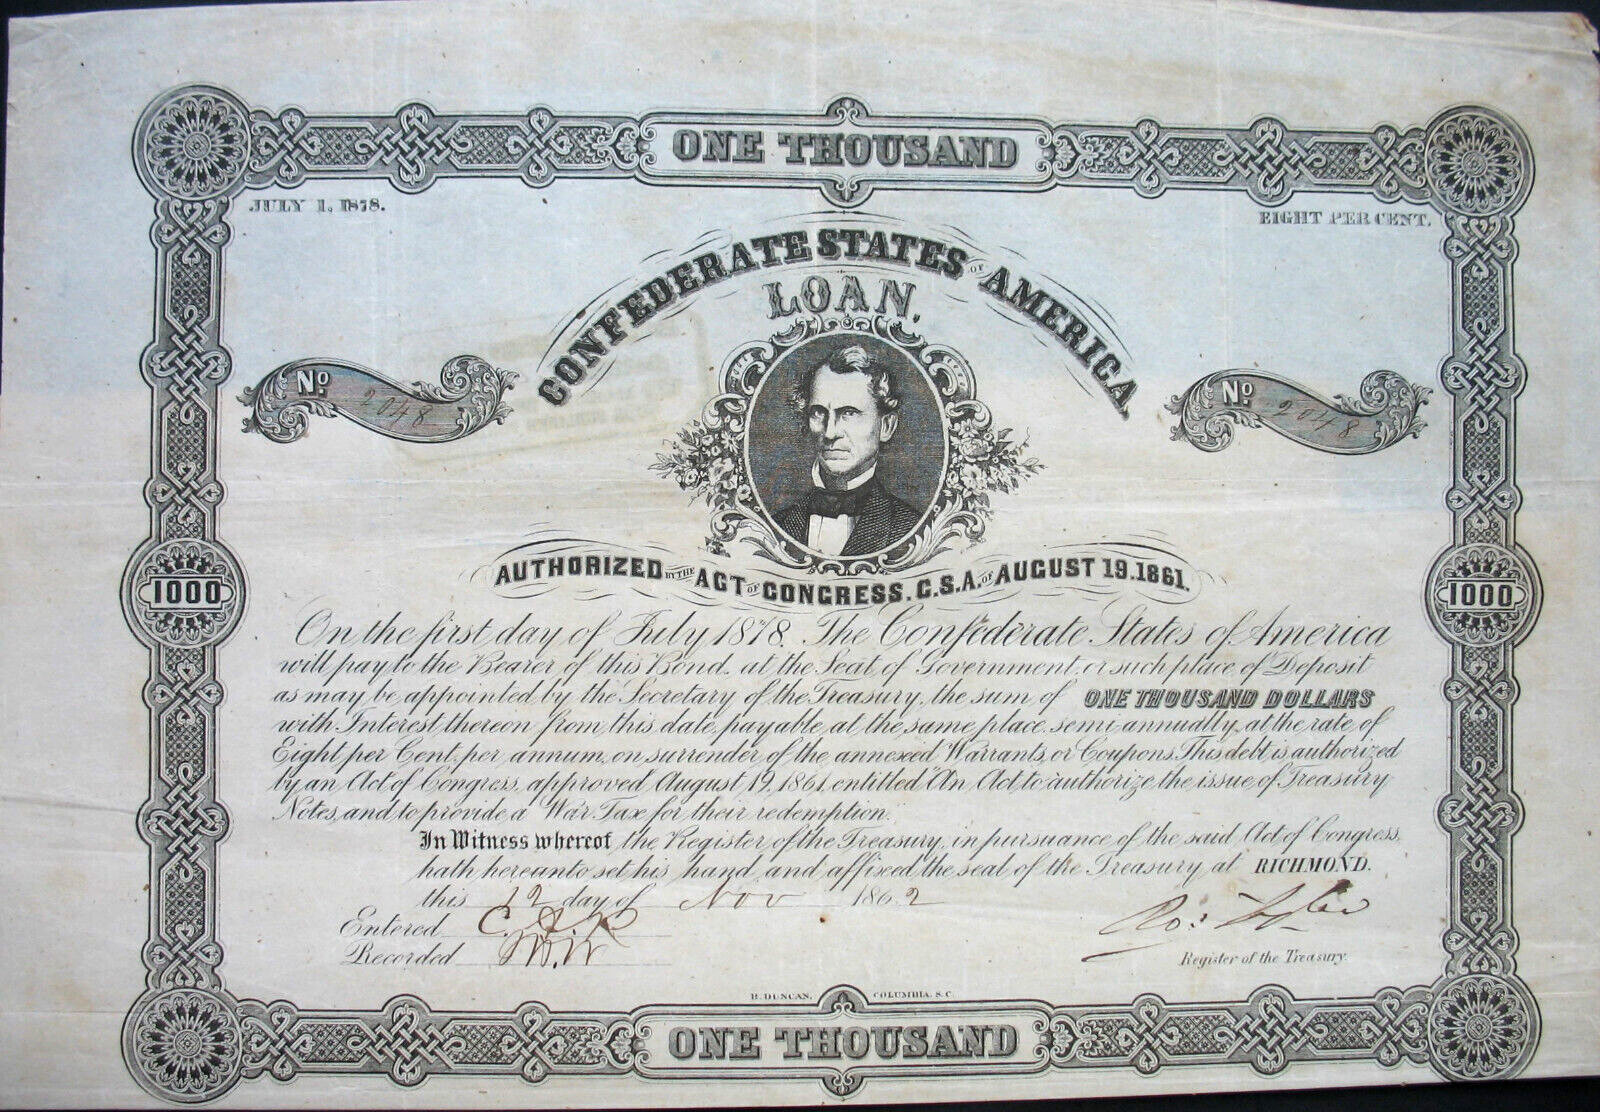 ONE THOUSAND
JULY 1, 1878.
EIGHT PER CENT.
CONFEDERATE STATES OF AMERICA
LOAN.
No. 2048
No. 2048
AUTHORIZED BY THE ACT OF CONGRESS. C.S.A. OF AUGUST 19. 1861.
1000
1000
On the first day of July 1878. The Confederate States of America
will pay to the Bearer of this Bond, at the Seat of Government, or such place of Deposit
as may be appointed by the Secretary of the Treasury, the sum of ONE THOUSAND DOLLARS
with Interest thereon from this date, payable at the same place, semi-annually, at the rate of
Eight per Cent. per annum, on surrender of the annexed Warrants, or Coupons. This debt is authorized
by an Act of Congress, approved August 19, 1861, entitled "An Act, to authorize the issue of Treasury
Notes, and to provide a War Tax for their redemption.
In Witness whereof, the Register of the Treasury, in pursuance of the said Act of Congress,
hath hereunto set his hand, and affixed the seal of the Treasury at RICHMOND.
this 12 day of Nov 1862
Entered C. A. R
Recorded W. W
Ro: Tyler
Register of the Treasury.
B. DUNCAN. COLUMBIA. S.C.
ONE THOUSAND